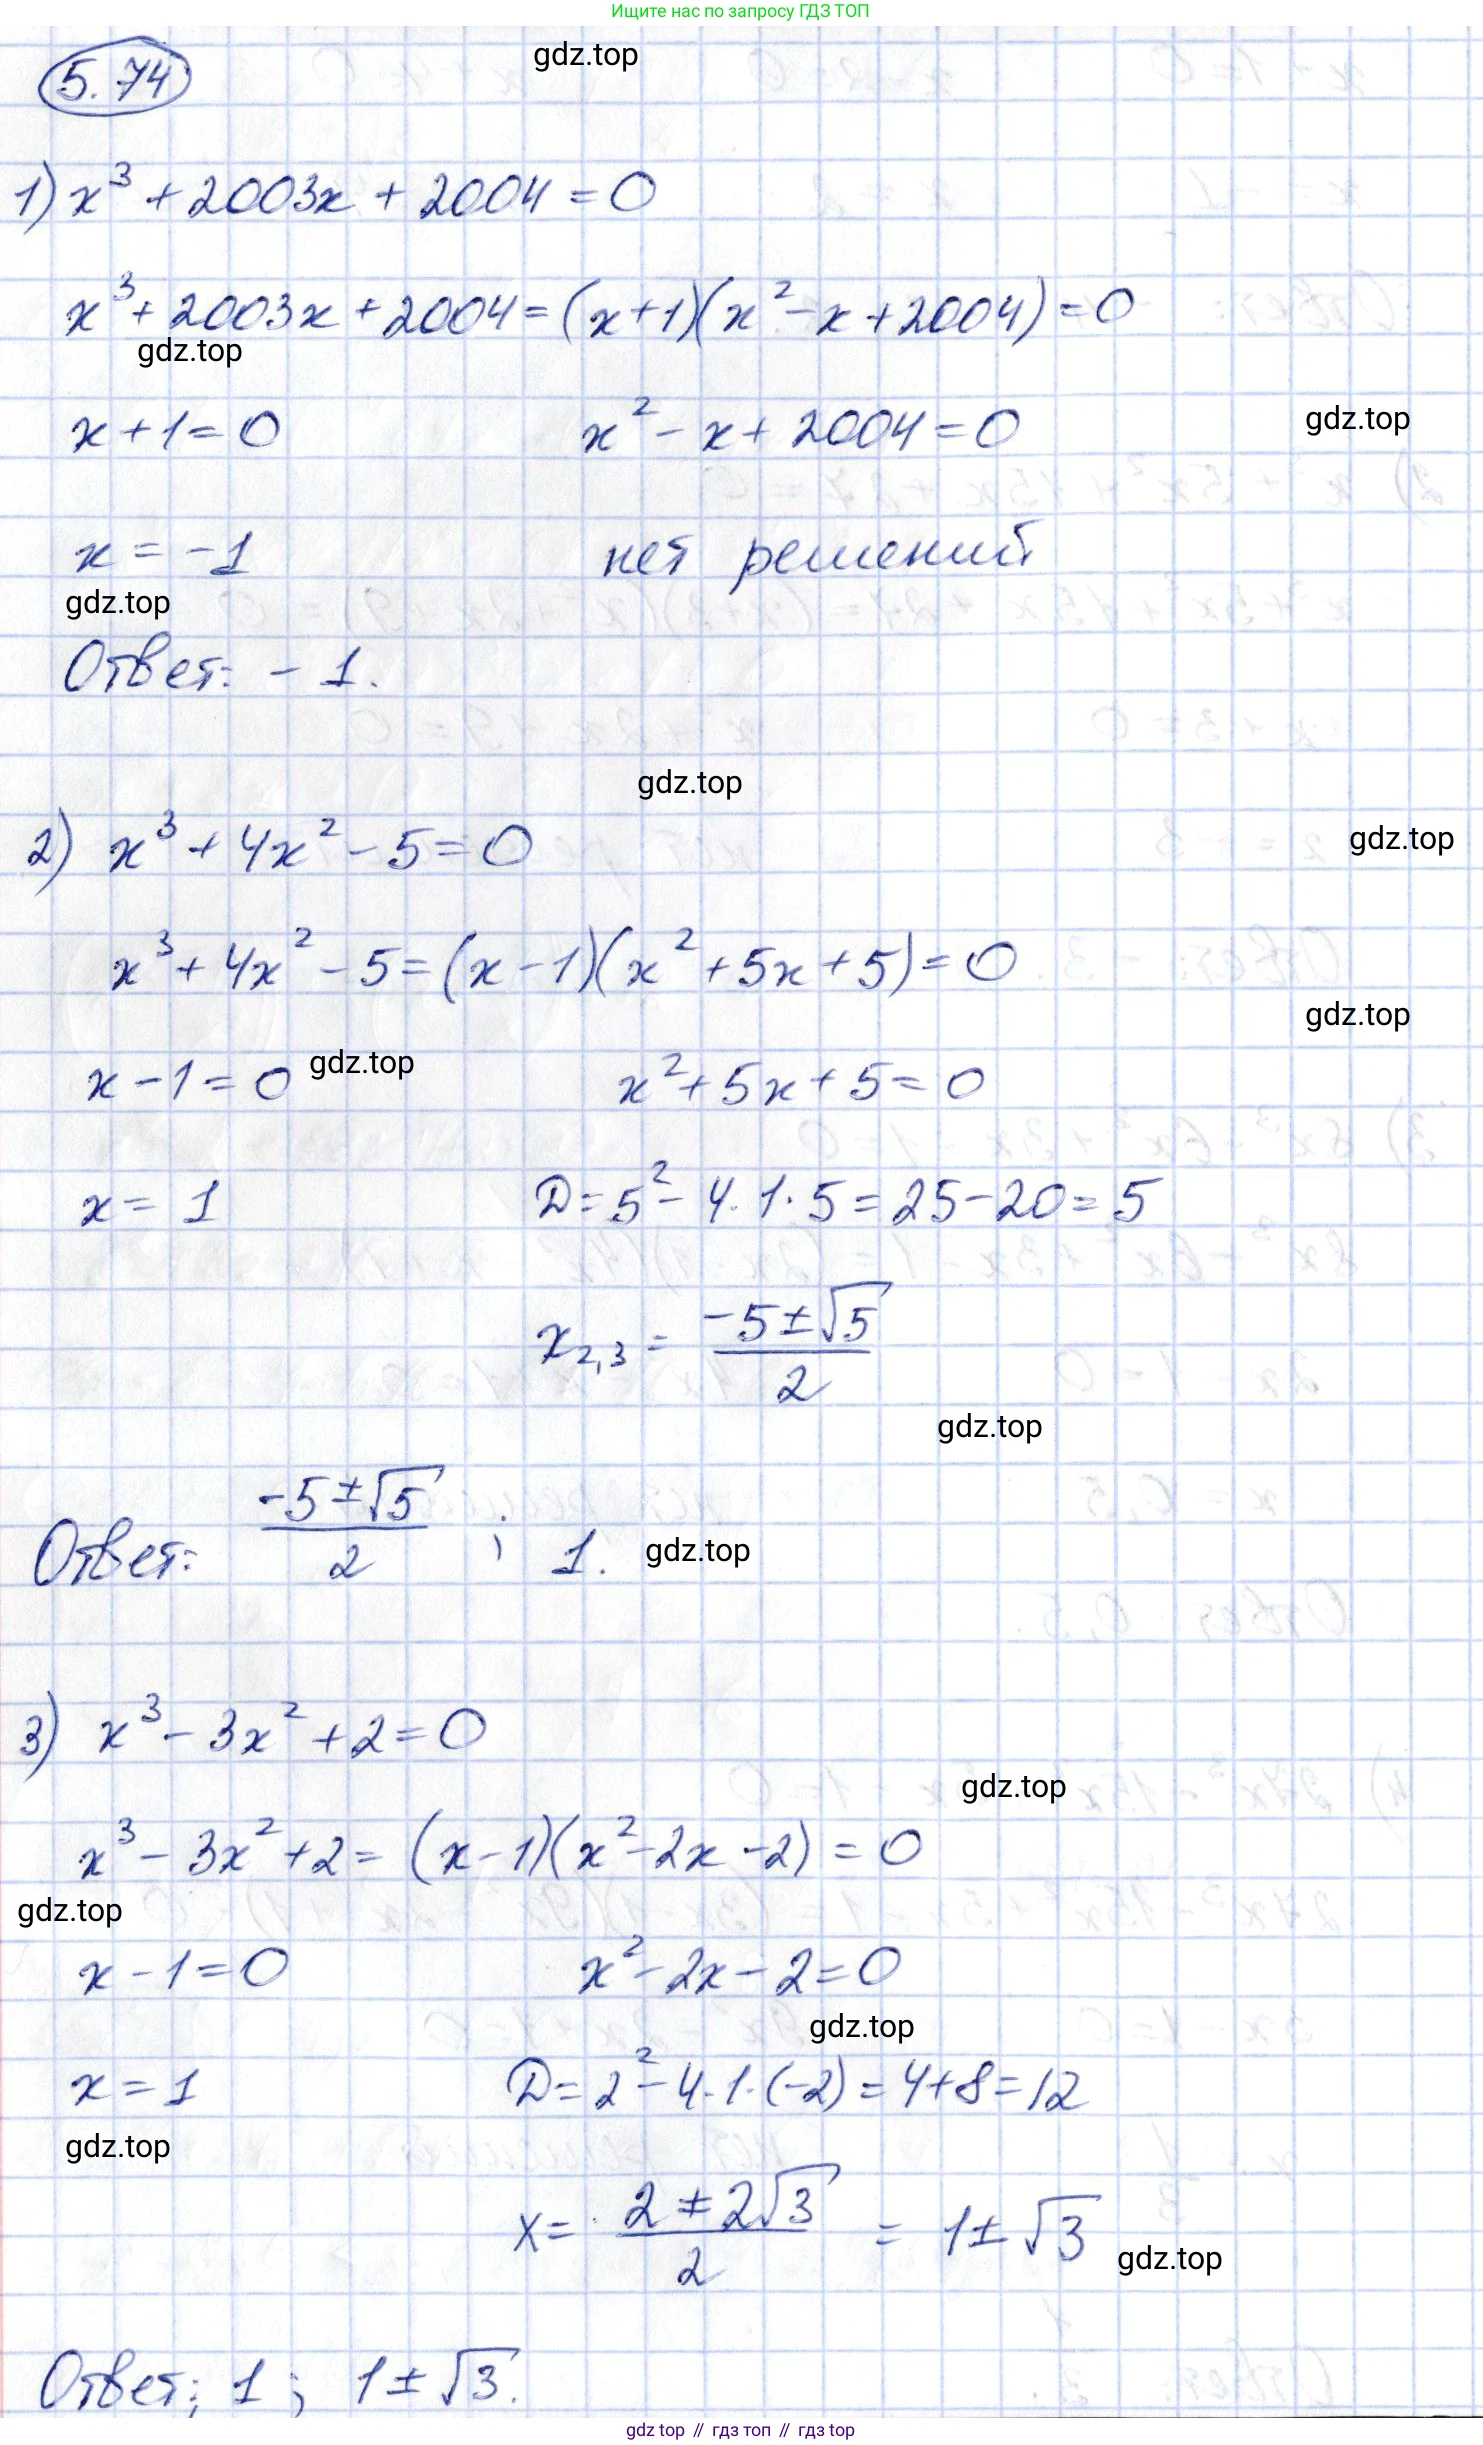 Ищите нас по запросу ГДЗ ТОП
gdz.top
5.74
1) x³ + 2003x + 2004 = 0
x³ + 2003x + 2004 = (x+1)(x² - x + 2004) = 0
gdz.top
x + 1 = 0    x² - x + 2004 = 0
gdz.top
x = -1    нет решений
gdz.top
Ответ: - 1.
gdz.top
2) x³ + 4x² - 5 = 0
gdz.top
x³ + 4x² - 5 = (x - 1)(x² + 5x + 5) = 0
gdz.top
x - 1 = 0    gdz.top    x² + 5x + 5 = 0
x = 1    D = 5² - 4·1·5 = 25 - 20 = 5
x₂,₃ = (-5 ± √5)/2
gdz.top
Ответ: (-5 ± √5)/2 ; 1.    gdz.top
3) x³ - 3x² + 2 = 0
gdz.top
x³ - 3x² + 2 = (x - 1)(x² - 2x - 2) = 0
gdz.top
x - 1 = 0    x² - 2x - 2 = 0
gdz.top
x = 1    D = 2² - 4·1·(-2) = 4 + 8 = 12
gdz.top
x = (2 ± 2√3)/2 = 1 ± √3
gdz.top
Ответ: 1 ; 1 ± √3.
gdz.top // гдз топ // гдз top